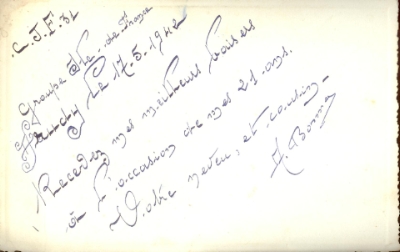 C.J.F. 31
Groupe Ile-de-France
le 17.5.1942
Recevez mes meilleurs baisers
à l'occasion de mes 21 ans.
Votre neveu, et cousin